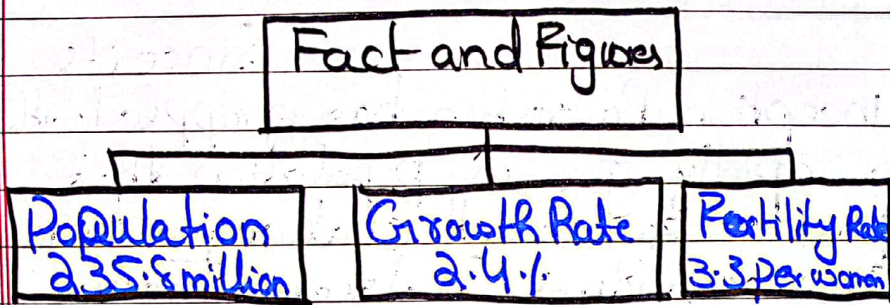 Fact and Figures
Population
235.8 million
Growth Rate
2.4%
Fertility Rate
3.3 per women